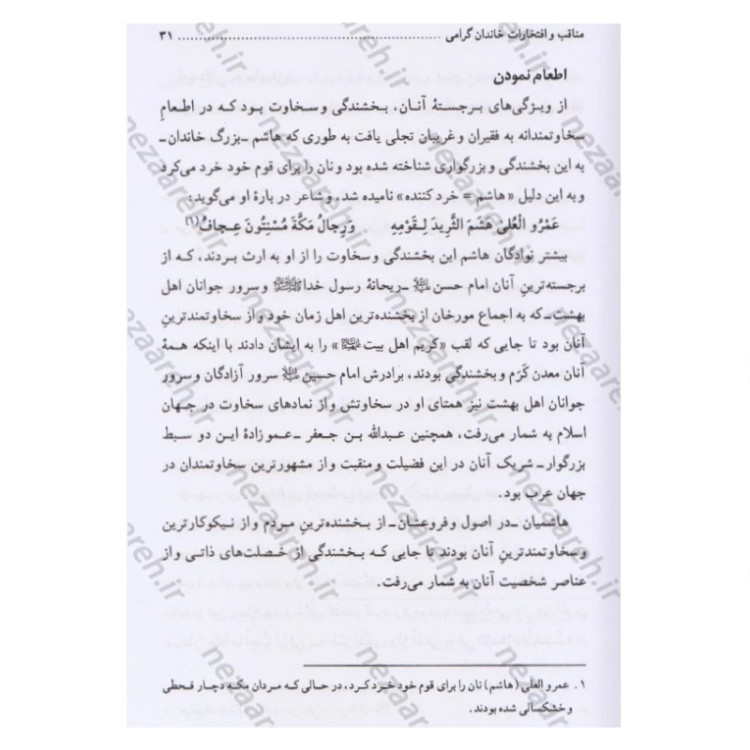 مناقب و افتخارات خاندان گرامی ........................................ ۳۱
اطعام نمودن
از ویژگی‌های برجستۀ آنان، بخشندگی و سخاوت بود که در اطعامِ
سخاوتمندانه به فقیران و غریبان تجلی یافت به طوری که هاشم ـ بزرگ خاندان ـ
به این بخشندگی و بزرگواری شناخته شده بود و نان را برای قوم خود خرد می‌کرد
و به این دلیل «هاشم = خرد کننده» نامیده شد، و شاعر در بارۀ او می‌گوید:
عَمْرُو الْعُلیٰ هَشَمَ الثَّرِیدَ لِـقَوْمِهِ وَرِجالُ مَکَّةَ مُسْنِتُونَ عِـجافُ(۱)
بیشتر نوادگان هاشم این بخشندگی و سخاوت را از او به ارث بردند، که از
برجسته‌ترین آنان امام حسن علیه‌السلام ـ ریحانۀ رسول خدا ﷺ و سرور جوانان اهل
بهشت ـ که به اجماع مورخان از بخشنده‌ترین اهل زمان خود و از سخاوتمندترینِ
آنان بود تا جایی که لقب «کریم اهل بیت علیهم‌السلام» را به ایشان دادند با اینکه همۀ
آنان معدن کَرَم و بخشندگی بودند، برادرش امام حسین علیه‌السلام سرور آزادگان و سرور
جوانان اهل بهشت نیز همتای او در سخاوتش و از نمادهای سخاوت در جهان
اسلام به شمار می‌رفت، همچنین عبدالله بن جعفر ـ عموزادۀ این دو سبط
بزرگوار ـ شریک آنان در این فضیلت و منقبت و از مشهورترین سخاوتمندان در
جهان عرب بود.
هاشمیان ـ در اصول و فروعشان ـ از بخشنده‌ترینِ مردم و از نیکوکارترین
و سخاوتمندترینِ آنان بودند تا جایی که بخشندگی از خصلت‌های ذاتی و از
عناصر شخصیت آنان به شمار می‌رفت.
۱. عمرو العلی (هاشم) نان را برای قوم خود خرد کرد، در حالی که مردان مکه دچار قحطی
و خشکسالی شده بودند.
nezaareh.ir